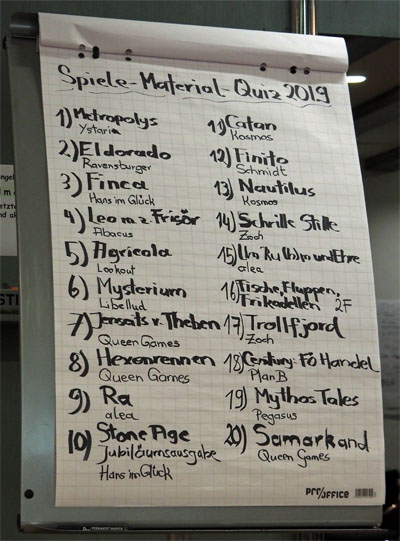 Spiele-Material-Quiz 2019
1) Metropolys
Ystaria
2.) El dorado
Ravensburger
3) Finca
Hans im Glück
4) Leo m. z. Frisör
Abacus
5) Agricola
Lookout
6) Mysterium
Libellud
7) Jenseits v. Theben
Queen Games
8) Hexenrennen
Queen Games
9) Ra
alea
10) Stone Age
Jubiläumsausgabe
Hans im Glück
11) Catan
Kosmos
12) Finito
Schmidt
13) Nautilus
Kosmos
14) Schrille Stille
Zoch
15) Um Ru(h)m und Ehre
alea
16) Fische, Fluppen,
Frikadellen 2F
17) Trollfjord
Zoch
18) Century: Fö Handel
Plan B
19) Mythos Tales
Pegasus
20) Samarkand
Queen Games
pro/office